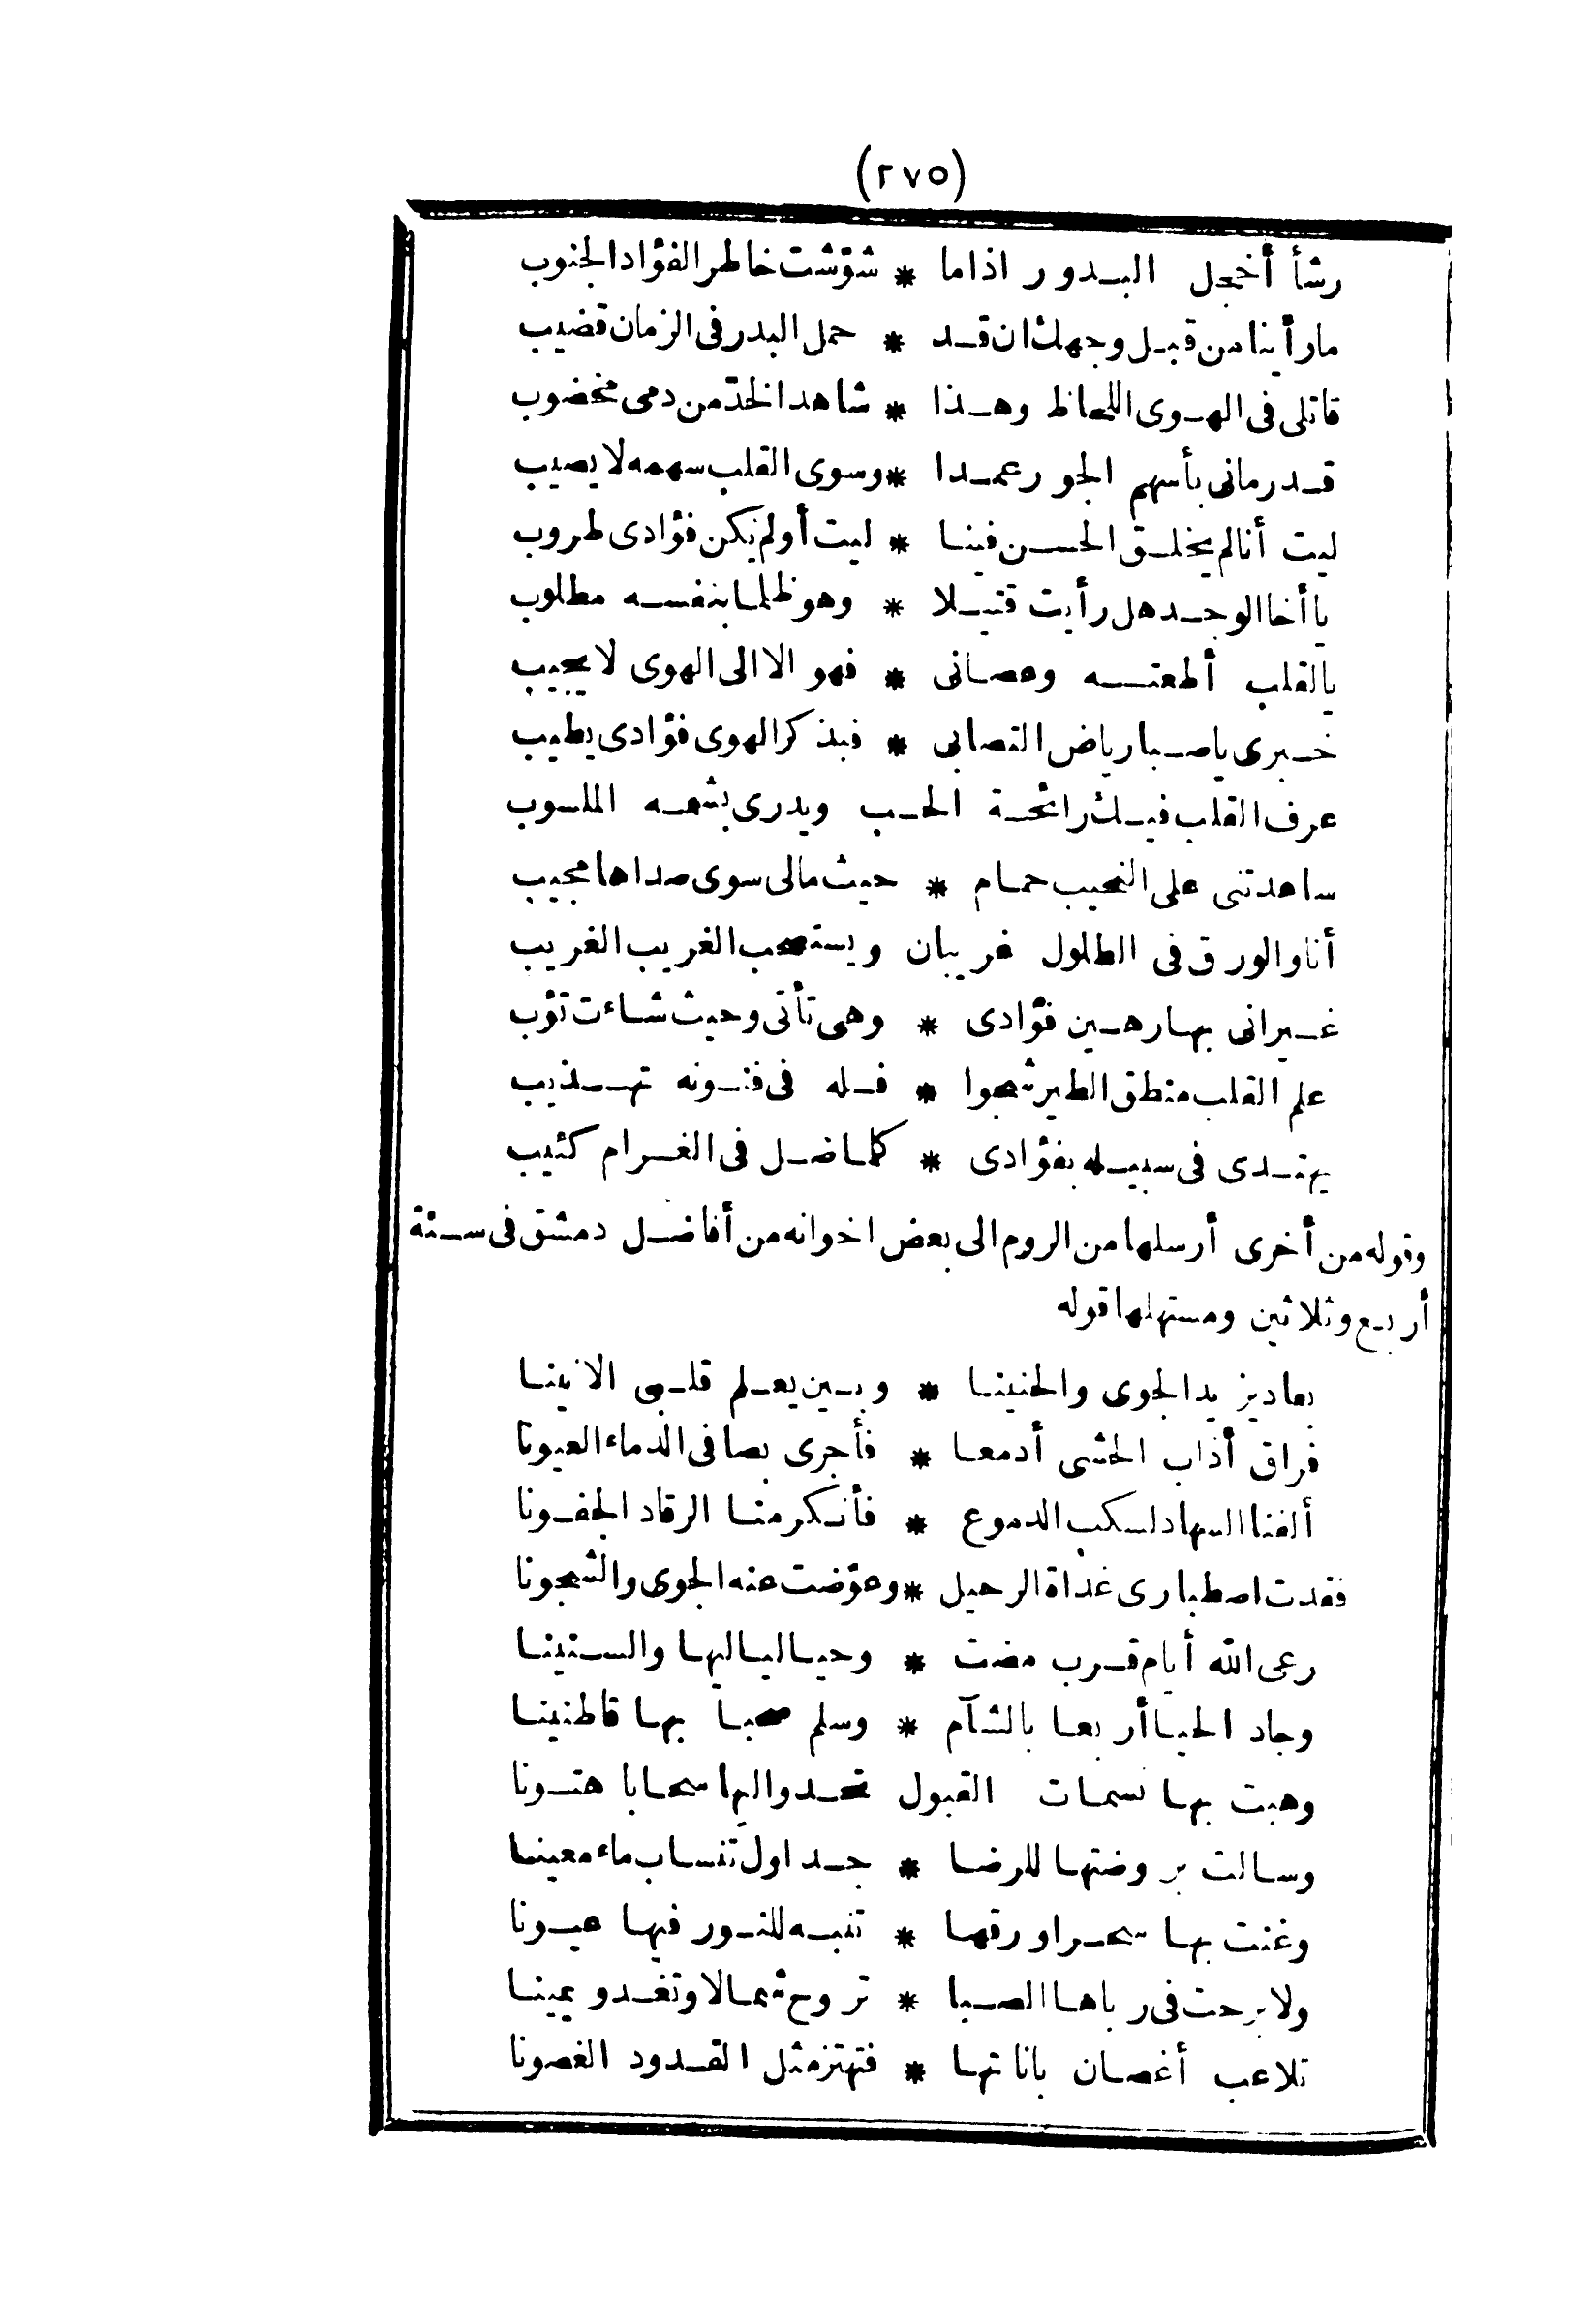 (٢٧٥)
رشأ أخجل البدور اذاما * شوّشت خاطر الفؤاد الجنوب
مارأينا من قبل وجهك ان قد * حمل البدر فى الزمان قضيب
قاتلى فى الهوى اللحاظ وهذا * شاهد الخدّ من دمى مخضوب
قد رمانى بأسهم الجور عمدا * وسوى القلب سهمه لا يصيب
ليت أنا لم يخلق الحسن فينا * ليت أولم يكن فؤادى طروب
يا أخا الوجد هل رأيت قتيلا * وهو ظلما بنفسه مطلوب
يالقلب أطعته وعصانى * فهو الا الى الهوى لا يجيب
خبرى يا صبا رياض التصابى * فبذكر الهوى فؤادى يطيب
عرف القلب فيك رائحة الحب ويدرى بشمه الملسوب
ساعدتنى على النحيب حمام * حيث مالى سوى صداها مجيب
أنا والورق فى الطلول غريبان ويستصحب الغريب الغريب
غير انى بها رهين فؤادى * وهى تأتى وحيث شاءت تؤب
علم القلب منطق الطير شجوا * فله فى فنونه تهذيب
يهتدى فى سبيله بفؤادى * كلما ضل فى الغرام كئيب
وقوله من أخرى أرسلها من الروم الى بعض اخوانه من أفاضل دمشق فى سنة
أربع وثلاثين ومستهلها قوله
بعاد يزيد الجوى والحنينا * وبين يعلم قلبى الانينا
فراق أذاب الحشى أدمعا * فأجرى بصافى الدماء العيونا
ألفنا السهاد لسكب الدموع * فأنكر منا الرقاد الجفونا
فقدت اصطبارى غداة الرحيل * وعوّضت عنه الجوى والشجونا
رعى الله أيام قرب مضت * وحيا لياليها والسنينا
وجاد الحيا أربعا بالشآم * وسلم صحبا بها قاطنينا
وهبت بها نسمات القبول تحدو اليها سحابا هتونا
وسالت بروضتها للرضا * جداول تنساب ماء معينا
وغنت بها سحرا ورقها * تنبه للنور فيها عيونا
ولا برحت فى رباها الصبا * تروح شمالا وتغدو يمينا
تلاعب أغصان باناتها * فتهتز مثل القدود الغصونا